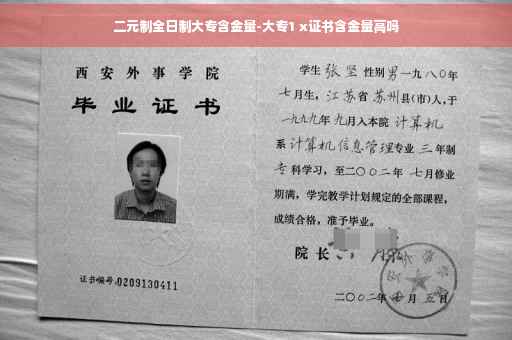 二元制全日制大专含金量-大专1 x证书含金量高吗
西安外事学院
毕业证书
证书编号:0209130411
学生 张坚 性别 男 一九八〇年
七月生，江苏省 苏州县(市)人，于
一九九九年 九月入本院 计算机
系 计算机信息管理专业 三 年制
专 科学习，至二〇〇二年 七月修业
期满，学完教学计划规定的全部课程，
成绩合格，准予毕业。
院 长
二〇〇二年 月 五 日